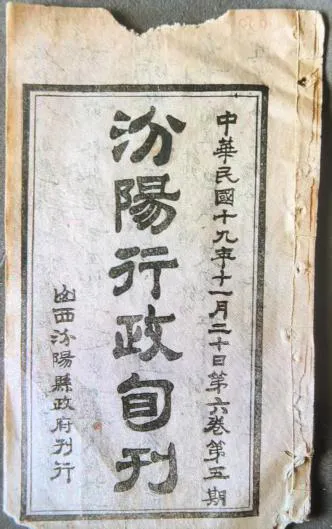 中華民國十九年十一月二十日第六卷第五期
汾陽行政旬刊
山西汾陽縣政府刊行